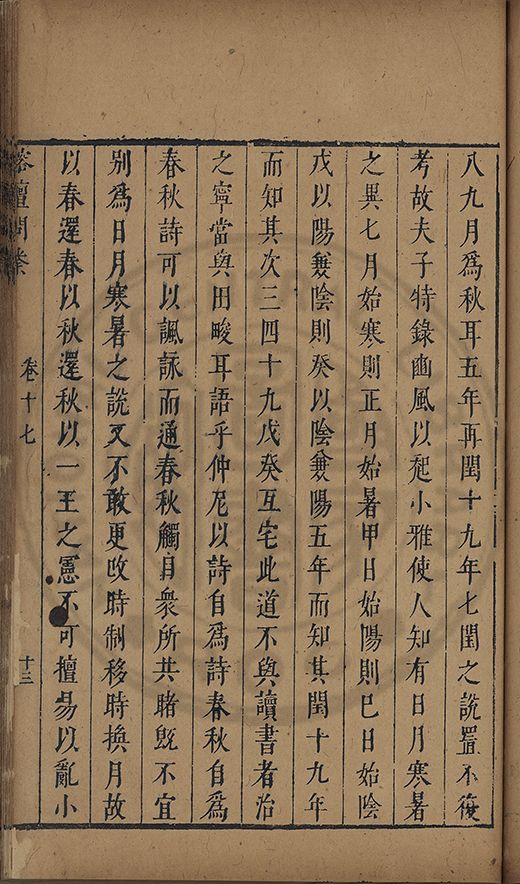 八九月爲秋耳五年再閏十九年七閏之說置不復
考故夫子特錄豳風以起小雅使人知有日月寒暑
之異七月始寒則正月始暑甲日始陽則巳日始陰
戊以陽兼陰則癸以陰兼陽五年而知其閏十九年
而知其次三四十九戊癸互宅此道不與讀書者治
之寧當與田畯耳語乎仲尼以詩自爲詩春秋自爲
春秋詩可以諷詠而通春秋觸目衆所共睹旣不宜
别爲日月寒暑之說又不敢更改時制移時換月故
以春還春以秋還秋以一王之憲不可擅易以亂小
榕壇問業
卷十七
十三